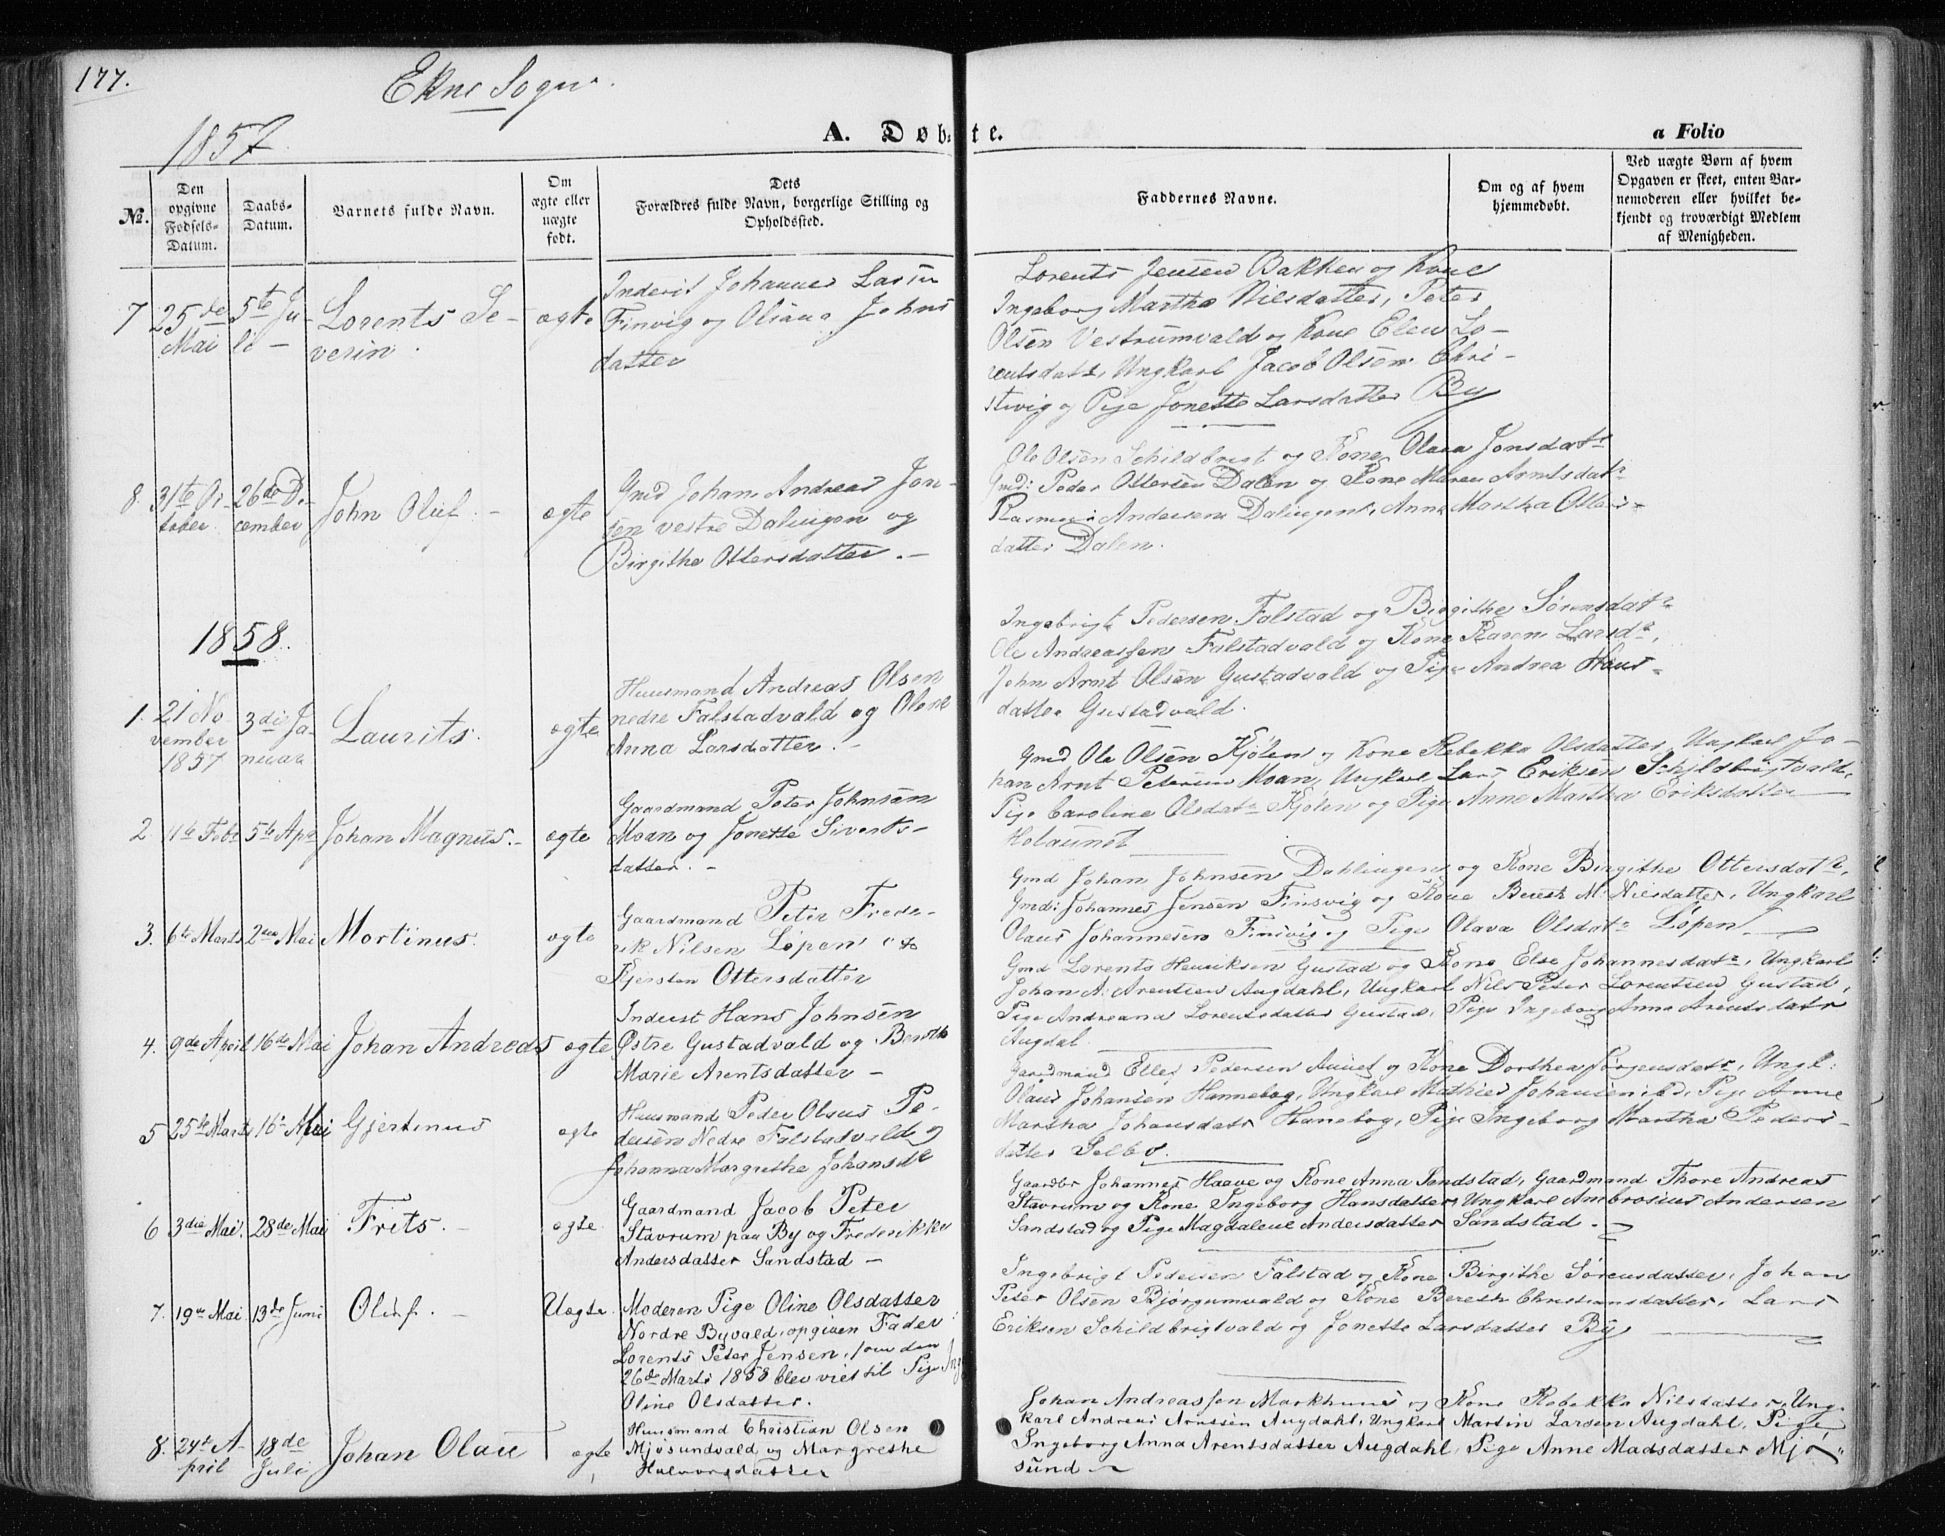 177.
Ekne Sogn.
1857
A. Døbte.
a Folio
No.
Den opgivne Fødsels-Datum.
Daabs-Datum.
Barnets fulde Navn.
Om ægte eller uægte født.
Dets Forældres fulde Navn, borgerlige Stilling og Opholdssted.
Faddernes Navne.
Om og af hvem hjemmedøbt.
Ved uægte Børn af hvem Opgaven er skeet, enten Barnemoderen eller hvilket bekjendt og troværdigt Medlem af Menigheden.
7 25de Mai 5te Juli - Lorents Severin. ægte
Inderst Johannes
Finvig og Oliana Johns
datter
Lorents Jensen Bakken og Kone
Ingeborg Martha Nilsdatter, Peter
Olsen Vestrumvald og Kone Elen Lo-
rentsdatt, Ungkarl Jacob Olsen
og Pige Jonette Larsdatter By
8. 31te October 26de December John Oluf - ægte
Gmd Johan Andreas Jon-
sen vestre Dalingen og
Birgithe Ottersdatter. -
Ole Olsen Schildbrigt og Kone Olava Jonsdatr
Gmd: Peder Ottersen Dalen og Kone Maren Arntsdatr
Andersen Dalingen, Anne Martha Otters-
datter Dalen.
1858.
1. 21 November 1857 3die Januar Laurits. ægte
Huusmand Andreas Olsen
nedre Falstadvald og Olene
Anna Larsdatter. -
Ingebrigt Pedersen Falstad og Birgithe Sørensdatr
Ole Andreassen Falstadvald og Kone Karen Larsdr,
John Arnt Olsen Gustadvald og Pige Andrea Hans-
datter Gustadvald.
2 11te Febr 5te Apr Johan Magnus. - ægte
Gaardmand Peter Johnsen
Moan og Jonette Siverts-
datter. -
Gmd Ole Olsen Kjølen og Kone Rebekka Olsdatter, Ungkarl Jo-
han Arnt Petersen Moan, Ungkarl Lars Eriksen Schildbrigtvald,
Pige Caroline Olsdatr Kjølen og Pige Anne Martha Eriksdatter
3. 6te Marts 2den Mai Mortinus. ægte
Gaardmand Peter Frede-
rik Nilsen Løpen og
Kjersten Ottersdatter
Gmd Johan Johnsen Dahlingen og Kone Birgithe Ottersdatr,
Gmd: Johannes Jensen Finsvig og Kone Bereth M: Nilsdatter, Ungkarl
Olaus Johannesen Finsvig og Pige Olava Olsdatr Løpen.
4. 9de April 16de Mai Johan Andreas ægte
Inderst Hans Johnsen
Østre Gustadvald og Bereth
Marie Arentsdatter -
Gmd Lorents Henriksen Gustad og Kone Else Johannesdatr, Ungkarl
Johan A: Arentsen Augdahl, Ungkarl Nils Peter Lorentsen Gustad,
Pige Andreana Lorentsdatter Gustad, Pige Ingeborg Anna Arentsdatr
Augdal.
5 25te Marts 16de Mai Gjertinus ægte
Huusmand Peder Olaus Pe-
dersen Nedre Falstadvald og
Johanna Margrethe Johansdr
Gaardmand Elles Pedersen Aunet og Kone Dorthea Jørgensdatr, Ungk:
Olaus Johansen Hannebog, Ungkarl Mathies Johansen ibd, Pige Anne
Martha Johansdatr Hanebog, Pige Ingeborg Martha Peders-
datter Selbo.
6 3die Mai, 28de Mai Frits. - ægte
Gaardmand Jacob Peter
Stavrum paa By og Frederikke
Andersdatter Sandstad -
Gaardbr Johannes Haave og Kone Anna Sandstad, Gaardmand Thore Andreas
Stavrum og Kone Ingeborg Hansdatter, Ungkarl Ambrosius Andersen
Sandstad og Pige Magdalene Andersdatter Sandstad. -
7. 19de Mai 13de Juni Oluf. - Uægte
Moderen Pige Oline Olsdatter
Nordre Byvald, opgiven Fader:
Lorents Peter Jensen, som den
26de Marts 1858 blev viet til Pige
Oline Olsdatter.
Ingebrigt Pedersen Falstad og Kone Birgithe Sørensdatter, Johan
Peter Olsen Bjørgumvald og Kone Bereth Christiansdatter, Lars
Eriksen Schildbrigtvald og Jonette Larsdatter By
8. 24de April 18de Juli Johan Olaus ægte
Huusmand Christian Olsen
Mjøsundvald og Margrethe
Halvorsdatter
Johan Andreassen Markhuus og Kone Rebekka Nilsdatter, Ung-
karl Andreas Arntsen Augdahl, Ungkarl Martin Larsen Augdahl, Pige
Ingeborg Anna Arentsdatter Augdahl, Pige Anne Madsdatter Mjø-
sund -